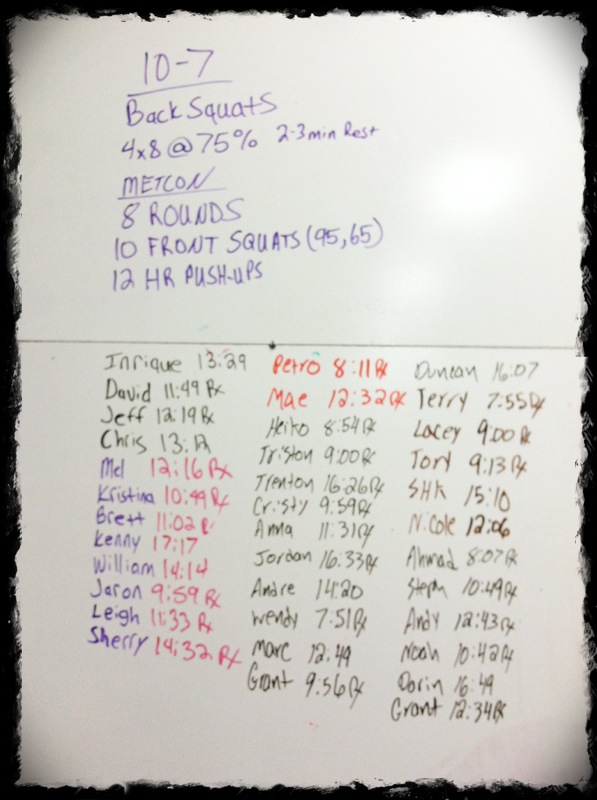 10-7
Back Squats
4x8 @ 75% 2-3 min Rest
METCON
8 ROUNDS
10 FRONT SQUATS (95,65)
12 HR PUSH-UPS
Inrique 13:29
David 11:49 Rx
Jeff 12:19 Rx
Chris 13:
Mel 12:16 Rx
Kristina 10:49 Rx
Brett 11:02
Kenny 17:17
William 14:14
Jaron 9:59 Rx
Leigh 11:33 Rx
Sherry 14:32 Rx
Petro 8:11 Rx
Mae 12:32 Rx
Heiko 8:54 Rx
Triston 9:00 Rx
Trenton 16:26 Rx
Cristy 9:59 Rx
Anna 11:31 Rx
Jordan 16:33 Rx
Andre 14:20
Wendy 7:51 Rx
Marc 12:49
Grant 9:56 Rx
Duncan 16:07
Terry 7:55 Rx
Lacey 9:00 Rx
Tory 9:13 Rx
15:10
Nicole 12:06
Ahmad 8:07 Rx
Steph 10:49 Rx
Andy 12:43 Rx
Noah 10:42 Rx
Dorin 16:49
Grant 12:34 Rx